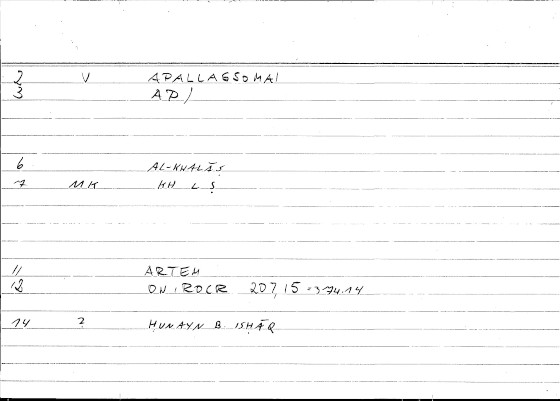 2 V APALLASSOMAI
3 AP/
6 AL-KHALĀṢ
7 MK KH L Ṣ
11 ARTEM
12 ONIROCR 207,15 = 374.14
14 2 ḤUNAYN B. ISḤĀQ